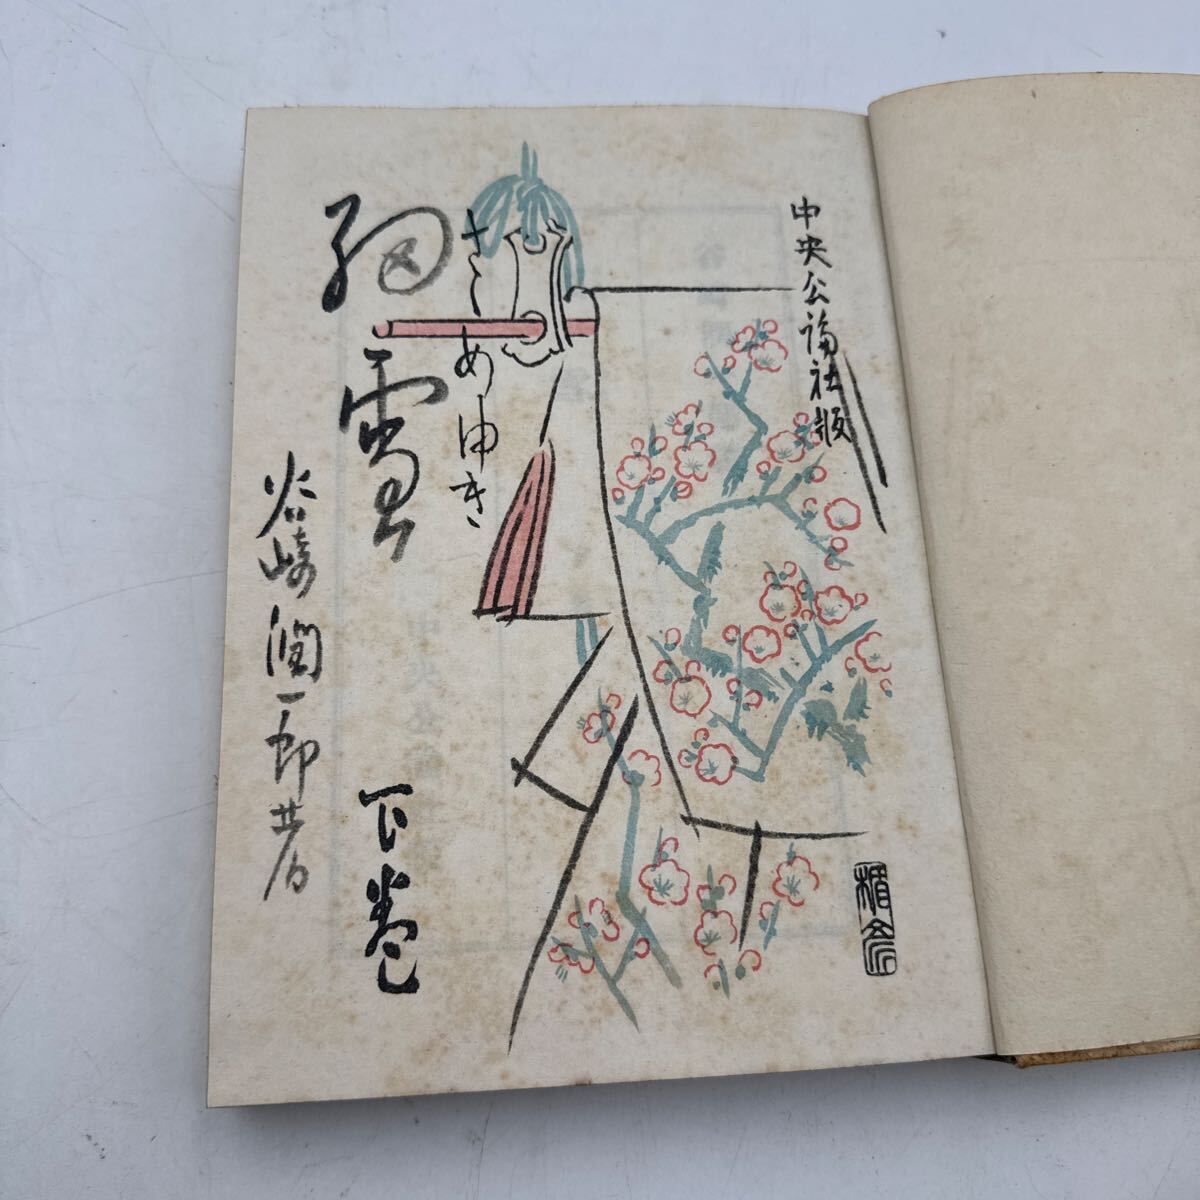 中央公論社版
さゝめゆき
細雪
下巻
谷崎潤一郎著